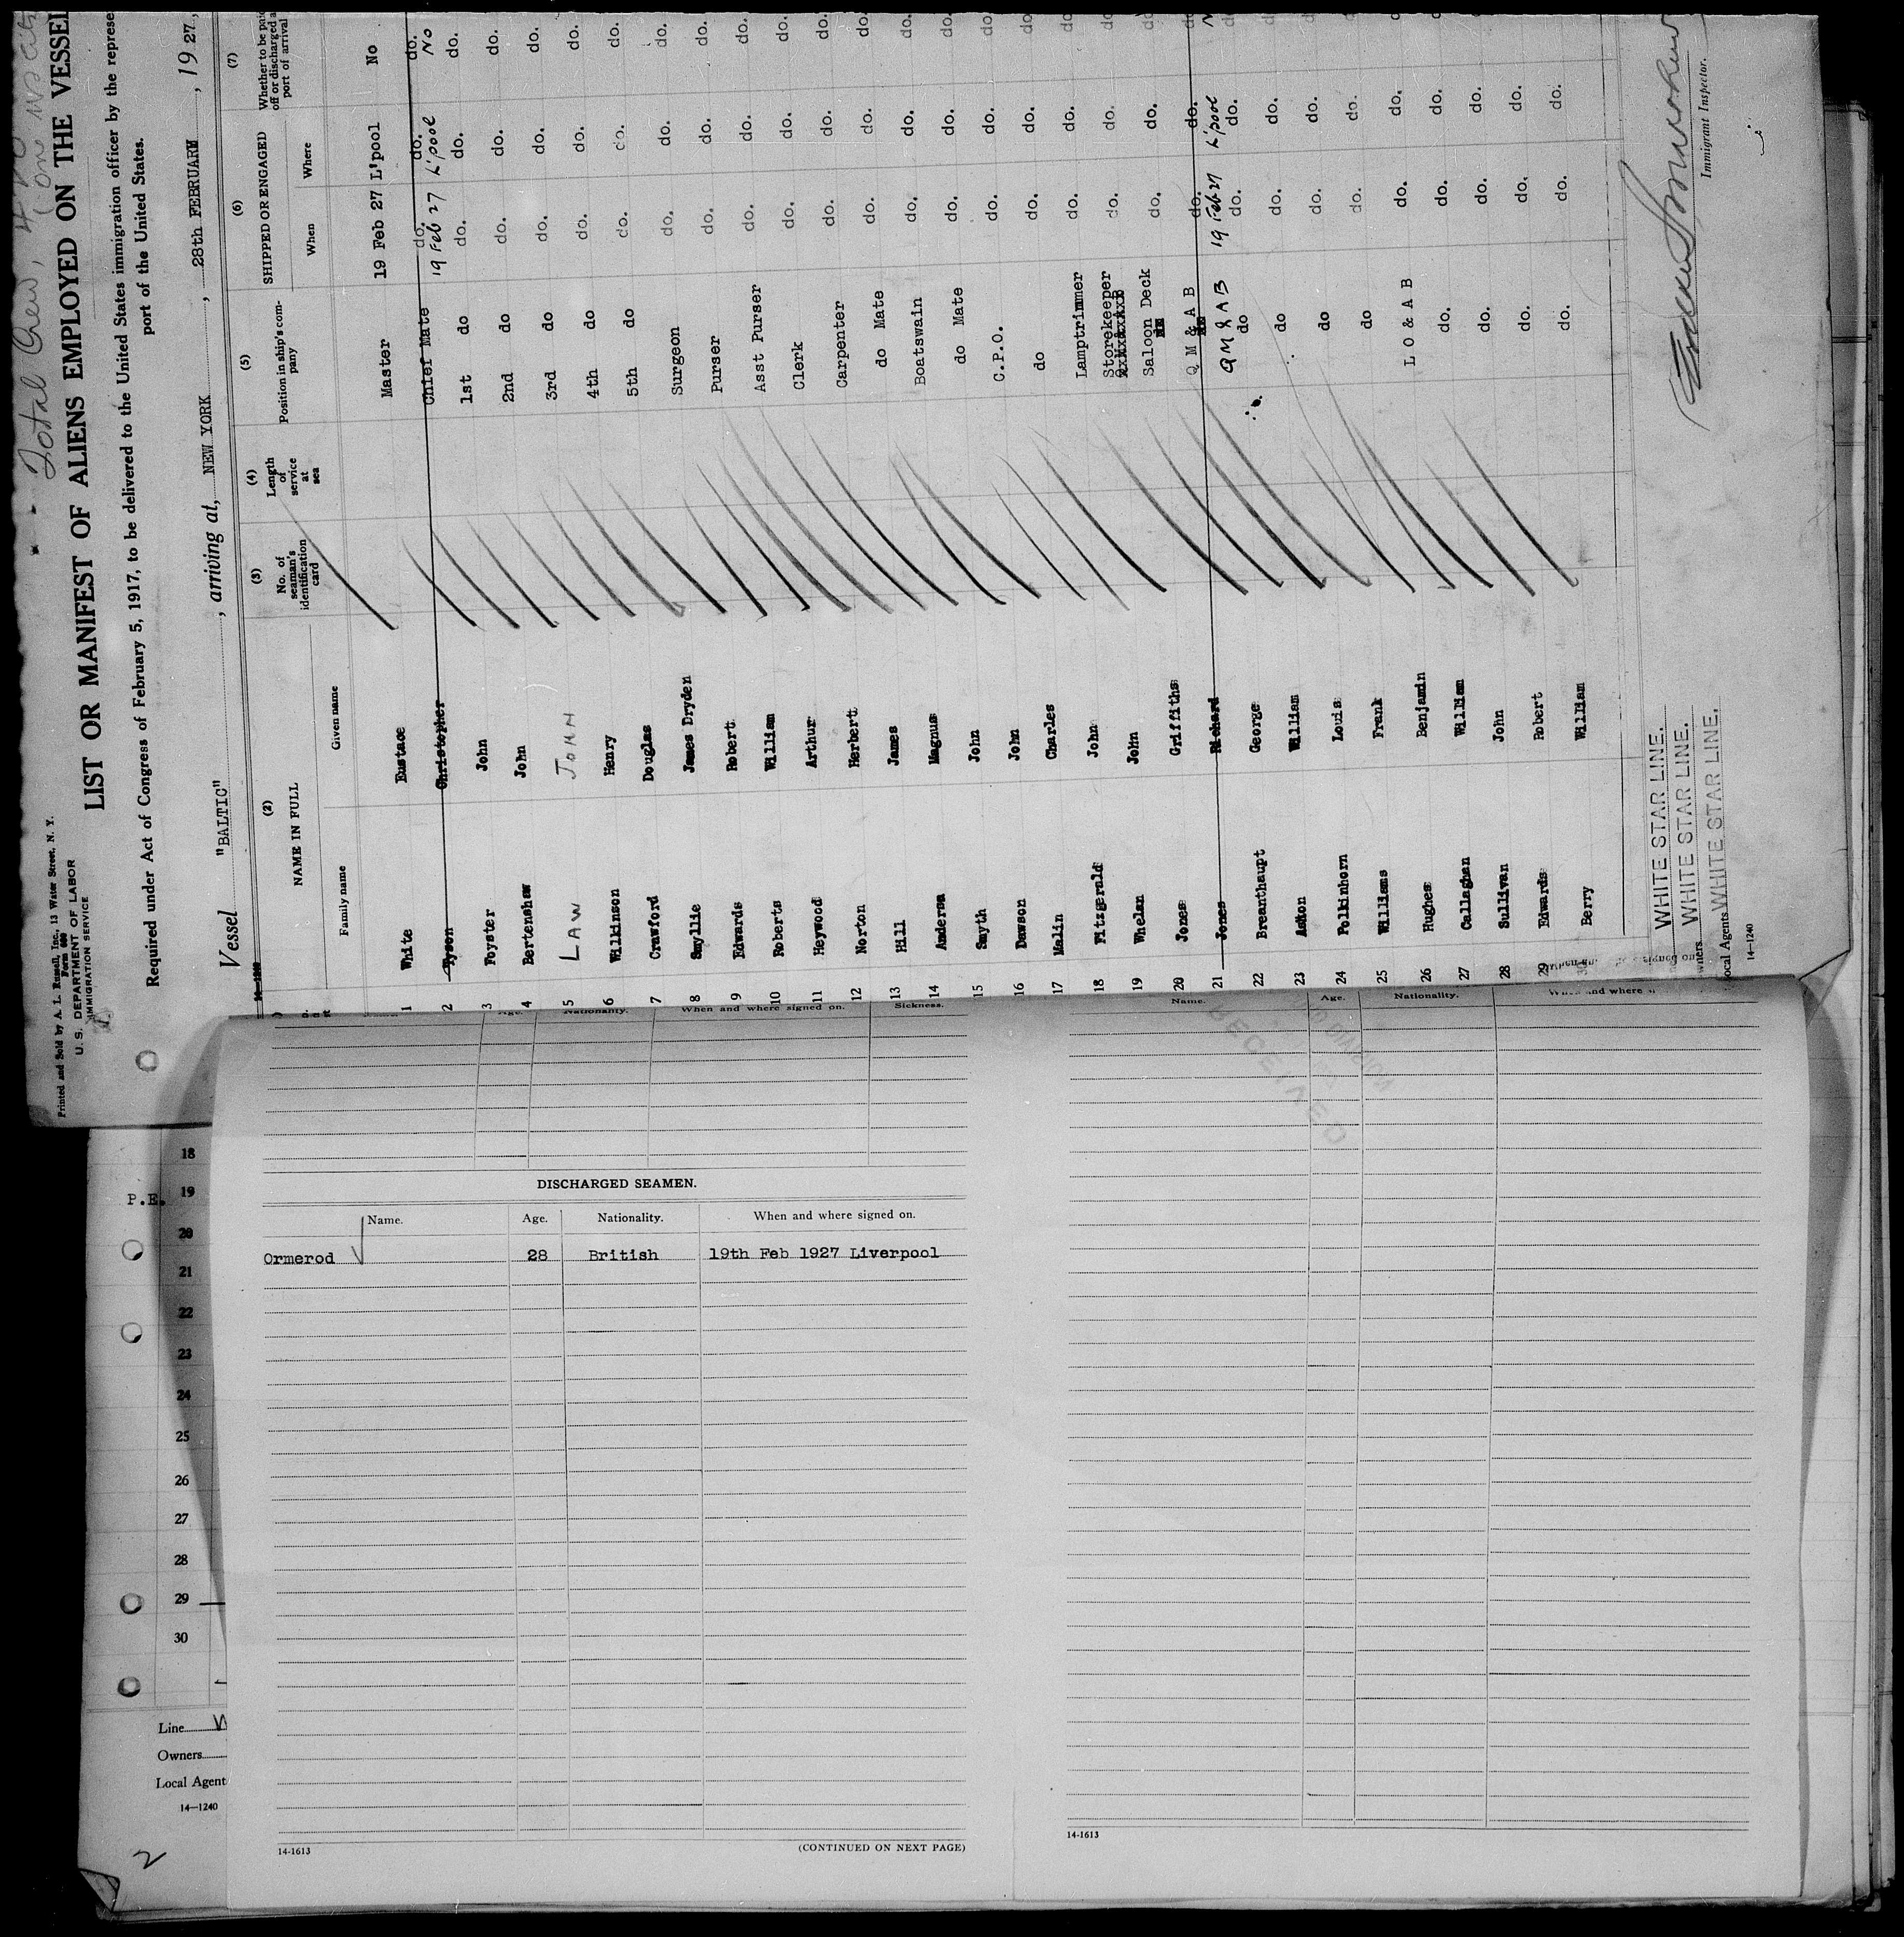 Total Crew,
LIST OR MANIFEST OF ALIENS EMPLOYED ON THE VESSEL
Required under Act of Congress of February 5, 1917, to be delivered to the United States immigration officer by the represe
port of the United States.
Printed and Sold by A. L. Russell, Inc., 13 Water Street, N. Y.
Form 680
U. S. DEPARTMENT OF LABOR
IMMIGRATION SERVICE
Vessel "BALTIC", arriving at, NEW YORK, 28th FEBRUARM, 1927,
(2) (3) (4) (5) (6) (7)
NAME IN FULL No. of seaman's identification card Length of service at sea Position in ship's company SHIPPED OR ENGAGED Whether to be paid off or discharged a port of arrival
Family name Given name When Where
1 White Eustace Master 19 Feb 27 L'pool No
2 Tyson Christopher Chief Mate do. do. do.
19 Feb 27 L'pool No
3 Foyster John 1st do do. do. do.
4 Bertenshaw John 2nd do do. do. do.
5 LAW JOHN 3rd do do. do. do.
6 Wilkinson Henry 4th do do. do. do.
7 Crawford Douglas 5th do do. do. do.
8 Smyllie James Dryden Surgeon do. do. do.
9 Edwards Robert Purser do. do. do.
10 Roberts William Asst Purser do. do. do.
11 Heywood Arthur Clerk do. do. do.
12 Norton Herbert Carpenter do. do. do.
13 Hill James do Mate do. do. do.
14 Anderson Magnus Boatswain do. do. do.
15 Smyth John do Mate do. do. do.
16 Dawson John C.P.O. do. do. do.
17 Malin Charles do do. do. do.
18 Fitzgerald John Lamptrimmer do. do. do
19 Whelan John Storekeeper do. do. do
20 Jones Griffiths Saloon Deck do. do. do
21 Jones Richard Q M & A B do. do. do
Q M & A B 19 Feb 27 L'pool N
22 Breanthaupt George do do. do. do
23 Aston William do do. do. d
24 Polkinhorn Louis do do. do. d
25 Williams Frank do do. do. d
26 Hughes Benjamin L O & A B do. do.
27 Callaghan William do. do. do.
28 Sullivan John do. do. do.
29 Edwards Robert do. do. do.
30 Berry William do. do. do.
WHITE STAR LINE.
wners WHITE STAR LINE.
ocal Agents WHITE STAR LINE.
14-1240
Immigrant Inspector.
Age. Nationality. When and where signed on. Sickness.
Name. Age. Nationality. When and where
RECEIVED
DISCHARGED SEAMEN.
Name. Age. Nationality. When and where signed on.
Ormerod 28 British 19th Feb 1927 Liverpool
14-1613
(CONTINUED ON NEXT PAGE)
14-1613
18
P.E. 19
20
21
22
23
24
25
26
27
28
29
30
Line W
Owners
Local Agent
14-1240
2